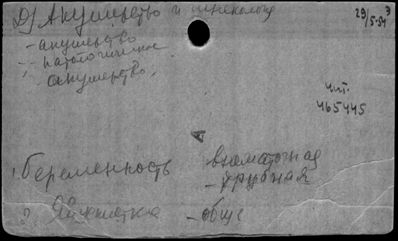 Д) Акушерство и гинекология
29/5-54 э
- акушерство
- патологическое
акушерство,
чит.
465445
1. Беременность внематочная
- трубная
2. Яйцеклетка - обще